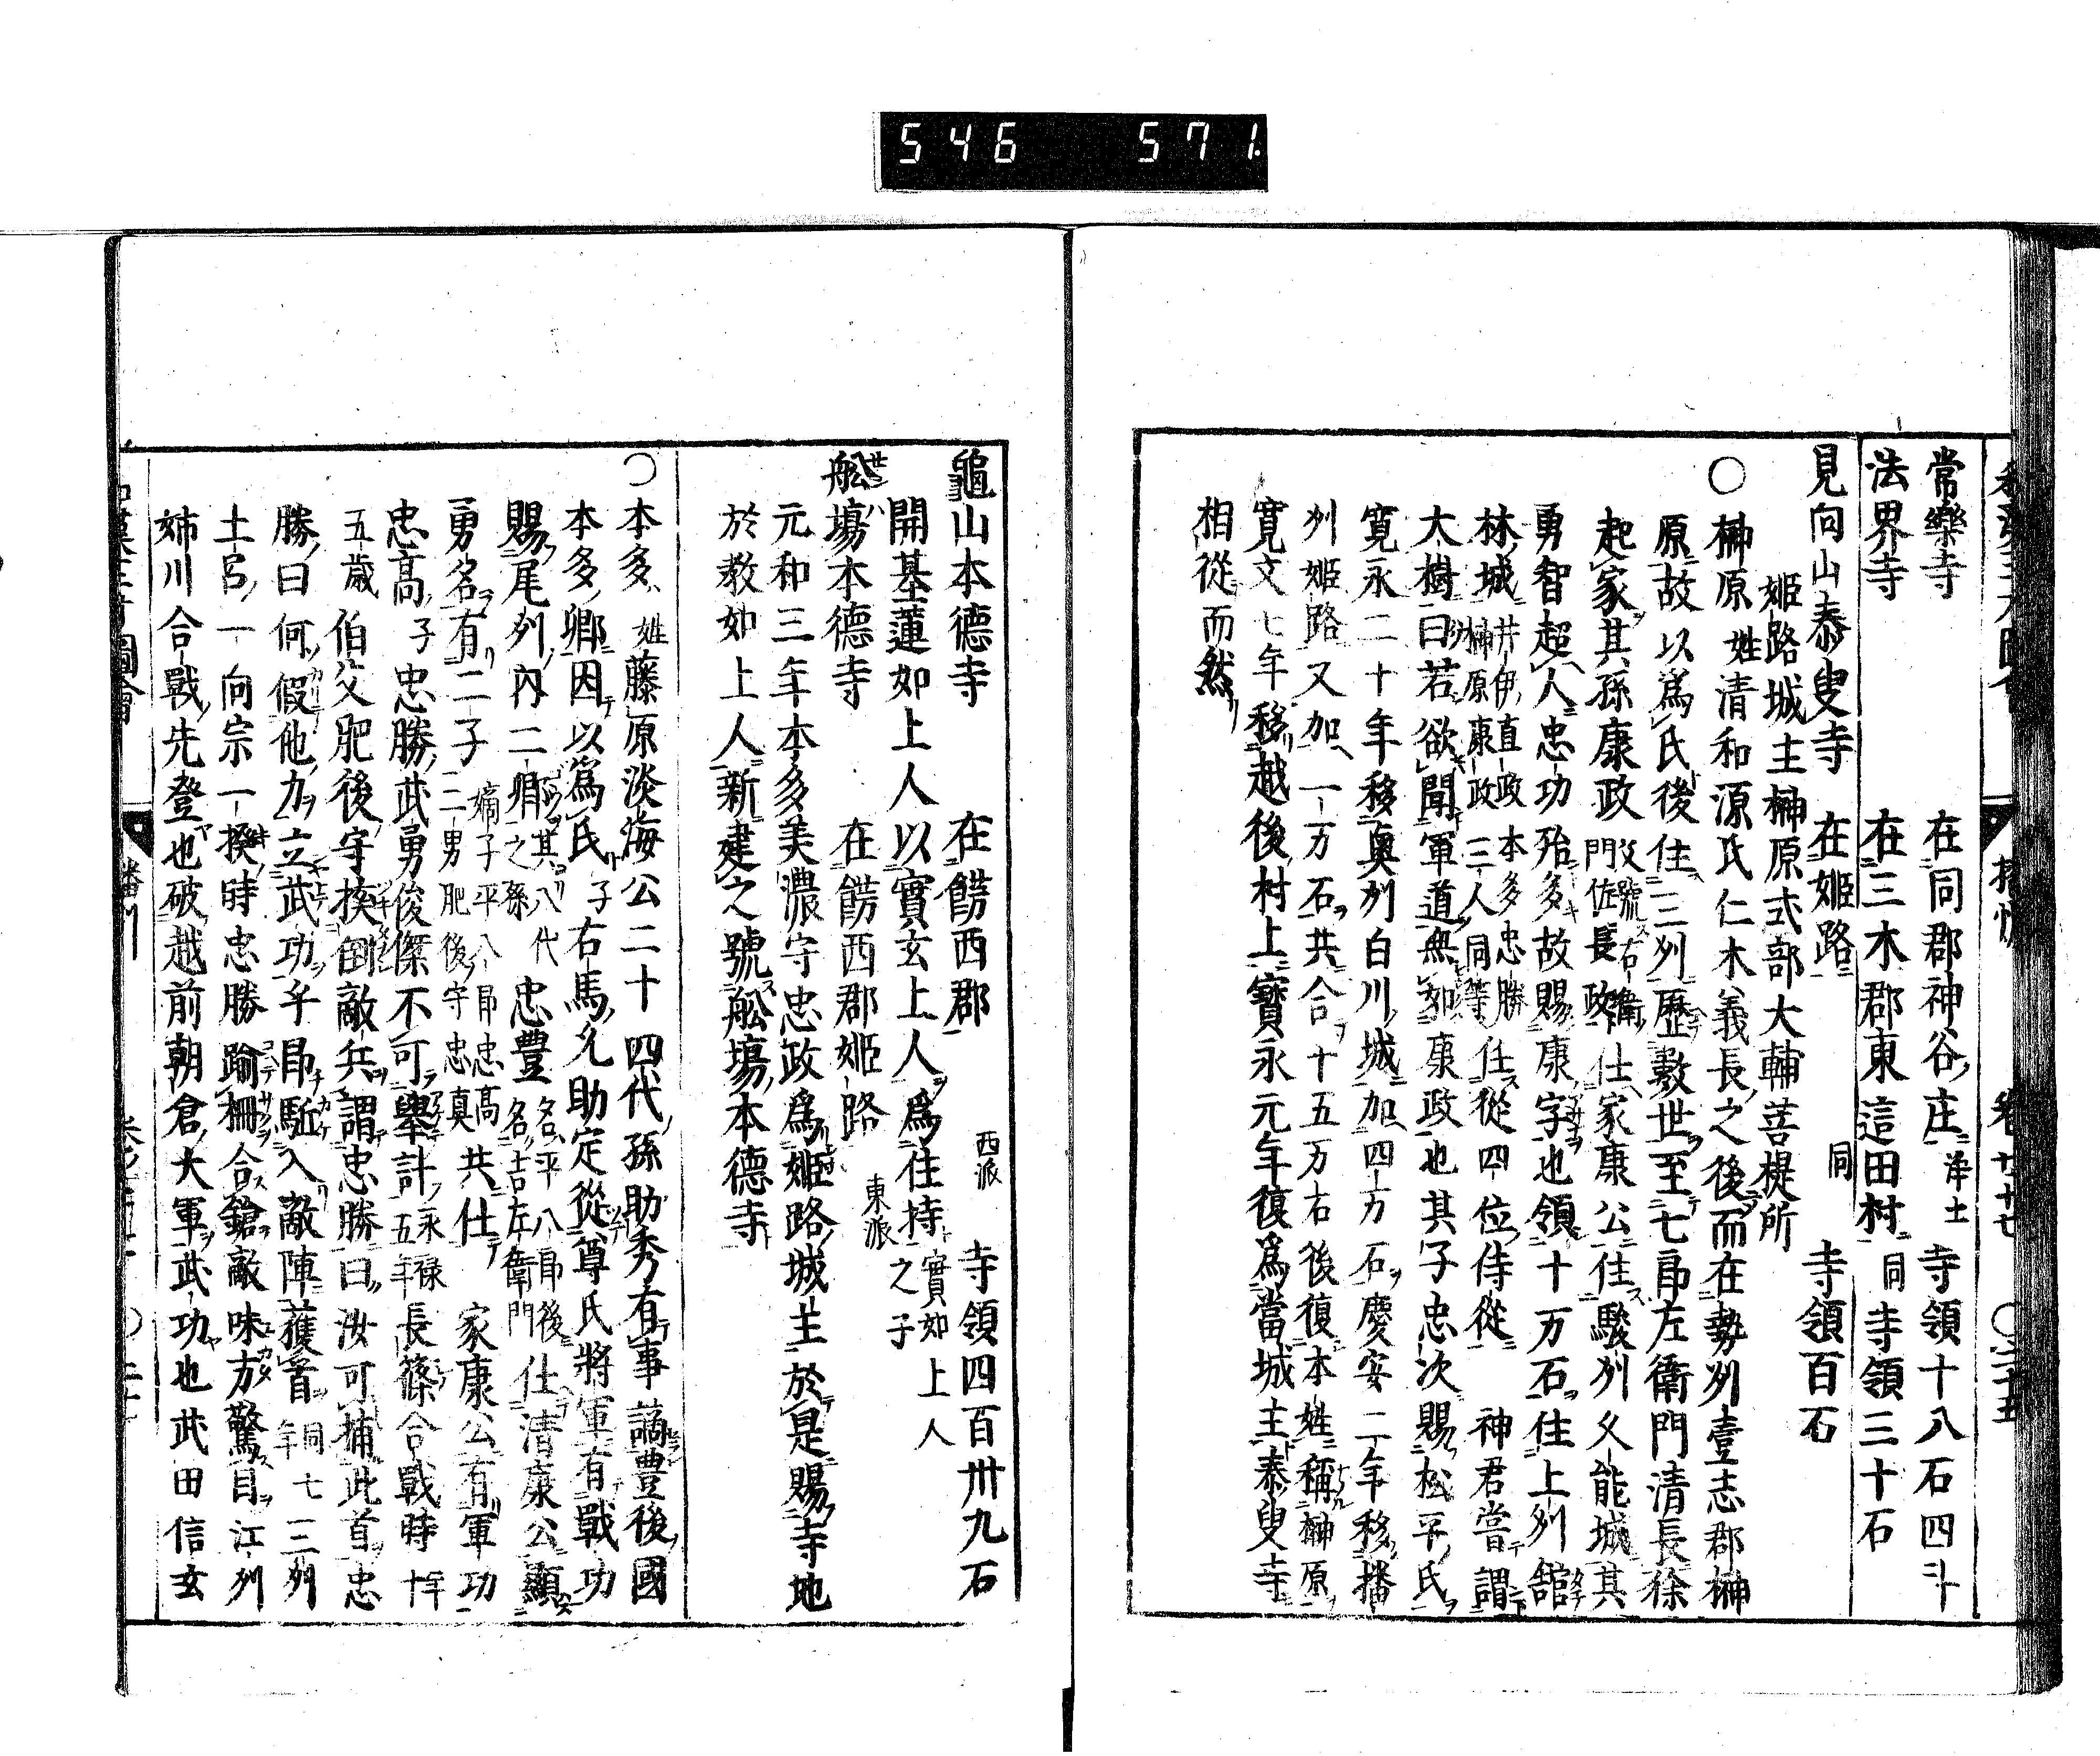 546 571
常樂寺 在同郡神谷庄 淨土 寺領十八石四斗
法界寺 在三木郡東這田村 同 寺領三十石
見向山泰叟寺 在姬路 同 寺領百石
姬路城主榊原式部大輔菩提所
○榊原 姓清和源氏仁木義長之後而在勢州壹志郡榊
原故以爲氏後住三列歷數世至七郎左衛門清長徐
起家其孫康政 父號右衛門佐長政 仕家康公住駿列久能城其
勇智超人忠功殆多故賜康字也領十万石住上列舘
林城 井伊直政 本多忠勝 榊原康政 三人同等 任從四位侍從 神君嘗謂
大樹曰若欲聞軍道無如康政也其子忠次賜松平氏
寬永二十年移奥列白川城加四万石慶安二年移播
列姬路又加一万石共合十五万石後復本姓稱榊原
寛文七年移越後村上寳永元年復爲當城主泰叟寺
相從而然
龜山本德寺 在餝西郡 西派 寺領四百卅九石
開基蓮如上人以實玄上人爲住持 實如上人之子
舩塲本德寺 在餝西郡姬路 東派
元和三年本多美濃守忠政爲姬路城主於是賜寺地
於教如上人新建之號舩塲本德寺
○本多 姓藤原淡海公二十四代孫助秀有事謫豊後國
本多鄉因以爲氏 子右馬允助定從尊氏將軍有戰功
賜尾列內二縣 其八代之孫 忠豊 名平八郎後名吉左衛門 仕清康公顯
勇名有二子 嫡子平八郎忠高 二男肥後守忠真 共仕 家康公有軍功
忠高子忠勝武勇俊傑不可舉計 永禄五年 長篠合戰時年十
五歲 伯父肥後守揍倒敵兵謂忠勝曰汝可捕此首忠
勝曰何假他力立武功乎即駈入敵陣獲首 同七年三列
土呂一向宗一揆時忠勝踰柵合鎗敵味方驚目江列
姉川合戰先登也破越前朝倉大軍武功也武田信玄